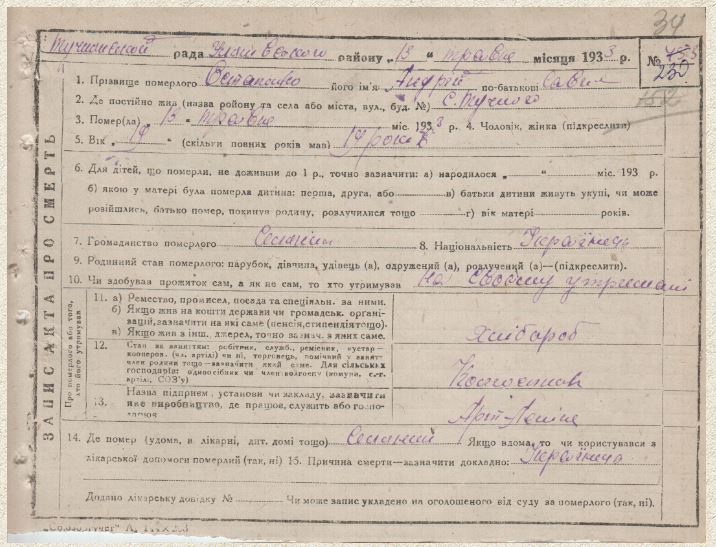 34
рада району „13“ травня місяця 1933 р. №
230
152
1. Прізвище померлого Остапенко його ім'я Андрій по-батькові Савич
2. Де постійно жив (назва району та села або міста, вул., буд. №)
3. Помер(ла) „ 13 “ травня міс. 1933 р. 4. Чоловік, жінка (підкреслити)
5. Вік „ 19 “ (скільки повних років мав) 19 років
6. Для дітей, що померли, не доживши до 1 р., точно зазначити: а) народилося „ “ міс. 193 р.
б) якою у матері була померла дитина: перша, друга, або в) батьки дитини живуть укупі, чи може
розійшлись, батько помер, покинув родину, розлучилися тощо г) вік матері років.
7. Громадянство померлого Селянин 8. Національність Українець
9. Родинний стан померлого: парубок, дівчина, удівець (а), одружений (а), розлучений (а)—(підкреслити).
10. Чи здобував прожиток сам, а як не сам, то хто утримував На своєму утриманні
ЗАПИС АКТА ПРО СМЕРТЬ
Про померлого або того, хто його утримував
11. а) Ремество, промисел, посада та спеціяльн. за ними.
б) Якщо жив на кошти держави чи громадськ. організацій, зазначити на які саме (пенсія, стипендія тощо).
в) Якщо жив з інш. джерел, точно зазнач. з яких саме.
Хлібороб
12. Стан за заняттям: робітник, служб., ремісник, кустар—
кооперов. (чл. артілі) чи ні, торговець, помічний у занятт.
член родини тощо—зазначити який саме. Для сільських
господарів: одноосібник чи член колгоспу (комуна, с.-г.
артіль, СОЗ'у)
Колгоспник
13. Назва підприєм., установи чи закладу, зазначити
яке виробництво, де працює, служить або господарює
Арт. Леніна
14. Де помер (удома, в лікарні, дит. домі тощо) Селянин Якщо вдома, то чи користувався з
лікарської допомоги померлий (так, ні) 15. Причина смерти—зазначити докладно: Українець
Додано лікарську довідку № Чи може запис укладено на оголошеного від суду за померлого (так, ні).